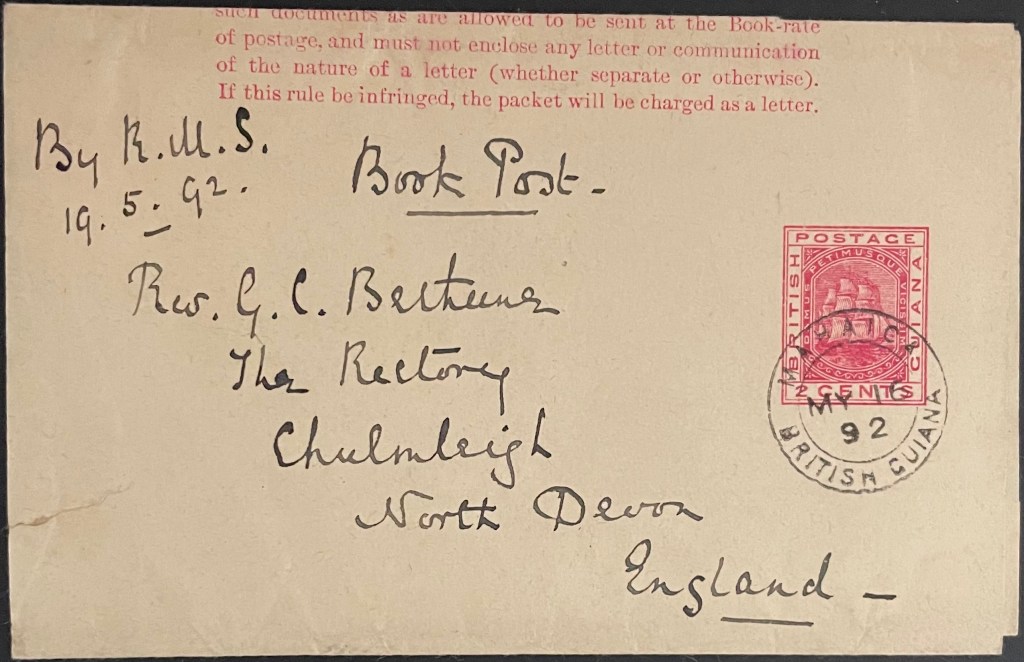 such documents as are allowed to be sent at the Book-rate
of postage, and must not enclose any letter or communication
of the nature of a letter (whether separate or otherwise).
If this rule be infringed, the packet will be charged as a letter.
By R.M.S.
19.5.92.
Book Post-
Rev. G. C. Bethune
The Rectory
Chulmleigh
North Devon
England -
POSTAGE
BRITISH
GUIANA
2 CENTS
DAMUS PETIMUSQUE VICISSIM
MAHAICA
MY 16
92
BRITISH GUIANA